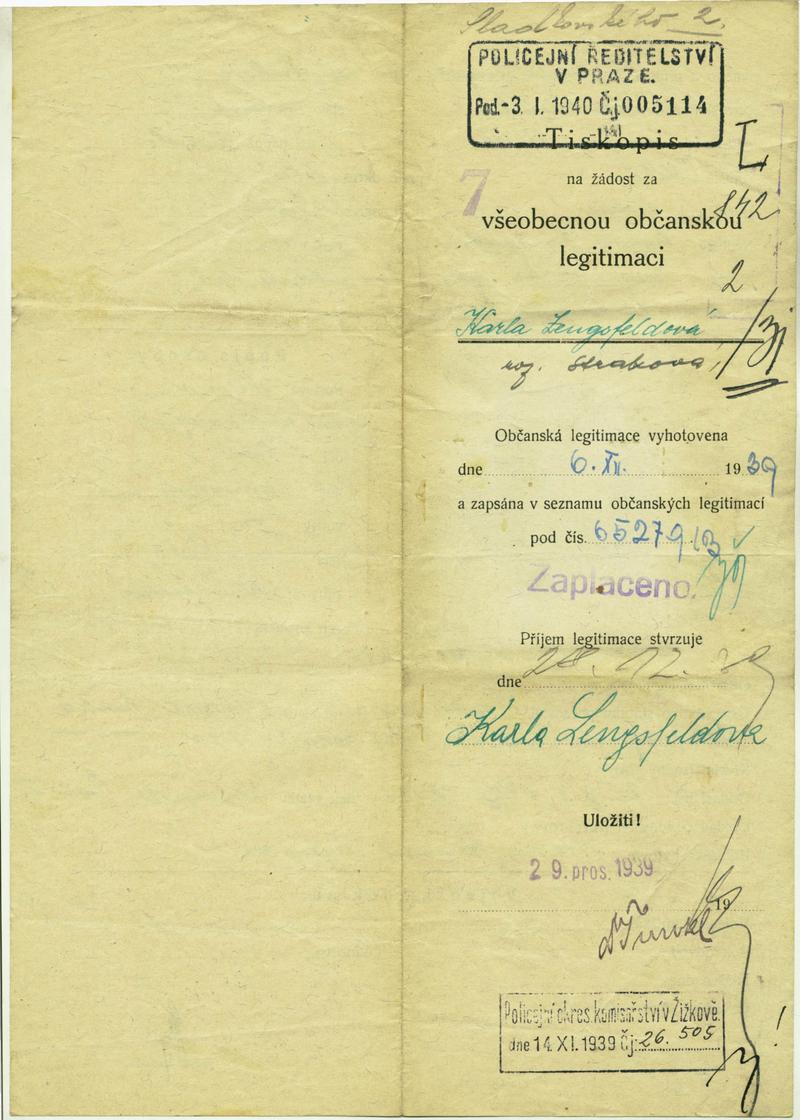 Sladkovského 2.
POLICEJNÍ ŘEDITELSTVÍ
V PRAZE.
Pod. -3. I. 1940 Čj. 005114
Tiskopis
na žádost za
7
842
všeobecnou občanskou
legitimaci
2
Karla Lengsfeldová
roz. Straková
Občanská legitimace vyhotovena
dne 6. XII. 1939
a zapsána v seznamu občanských legitimací
pod čís. 65279/13
Zaplaceno.
Příjem legitimace stvrzuje
dne 28. 12. 39
Karla Lengsfeldova
Uložiti!
29. pros. 1939
19
Policejní okres. komisařství v Žižkově.
dne 14. XI. 1939 Čj: 26.505